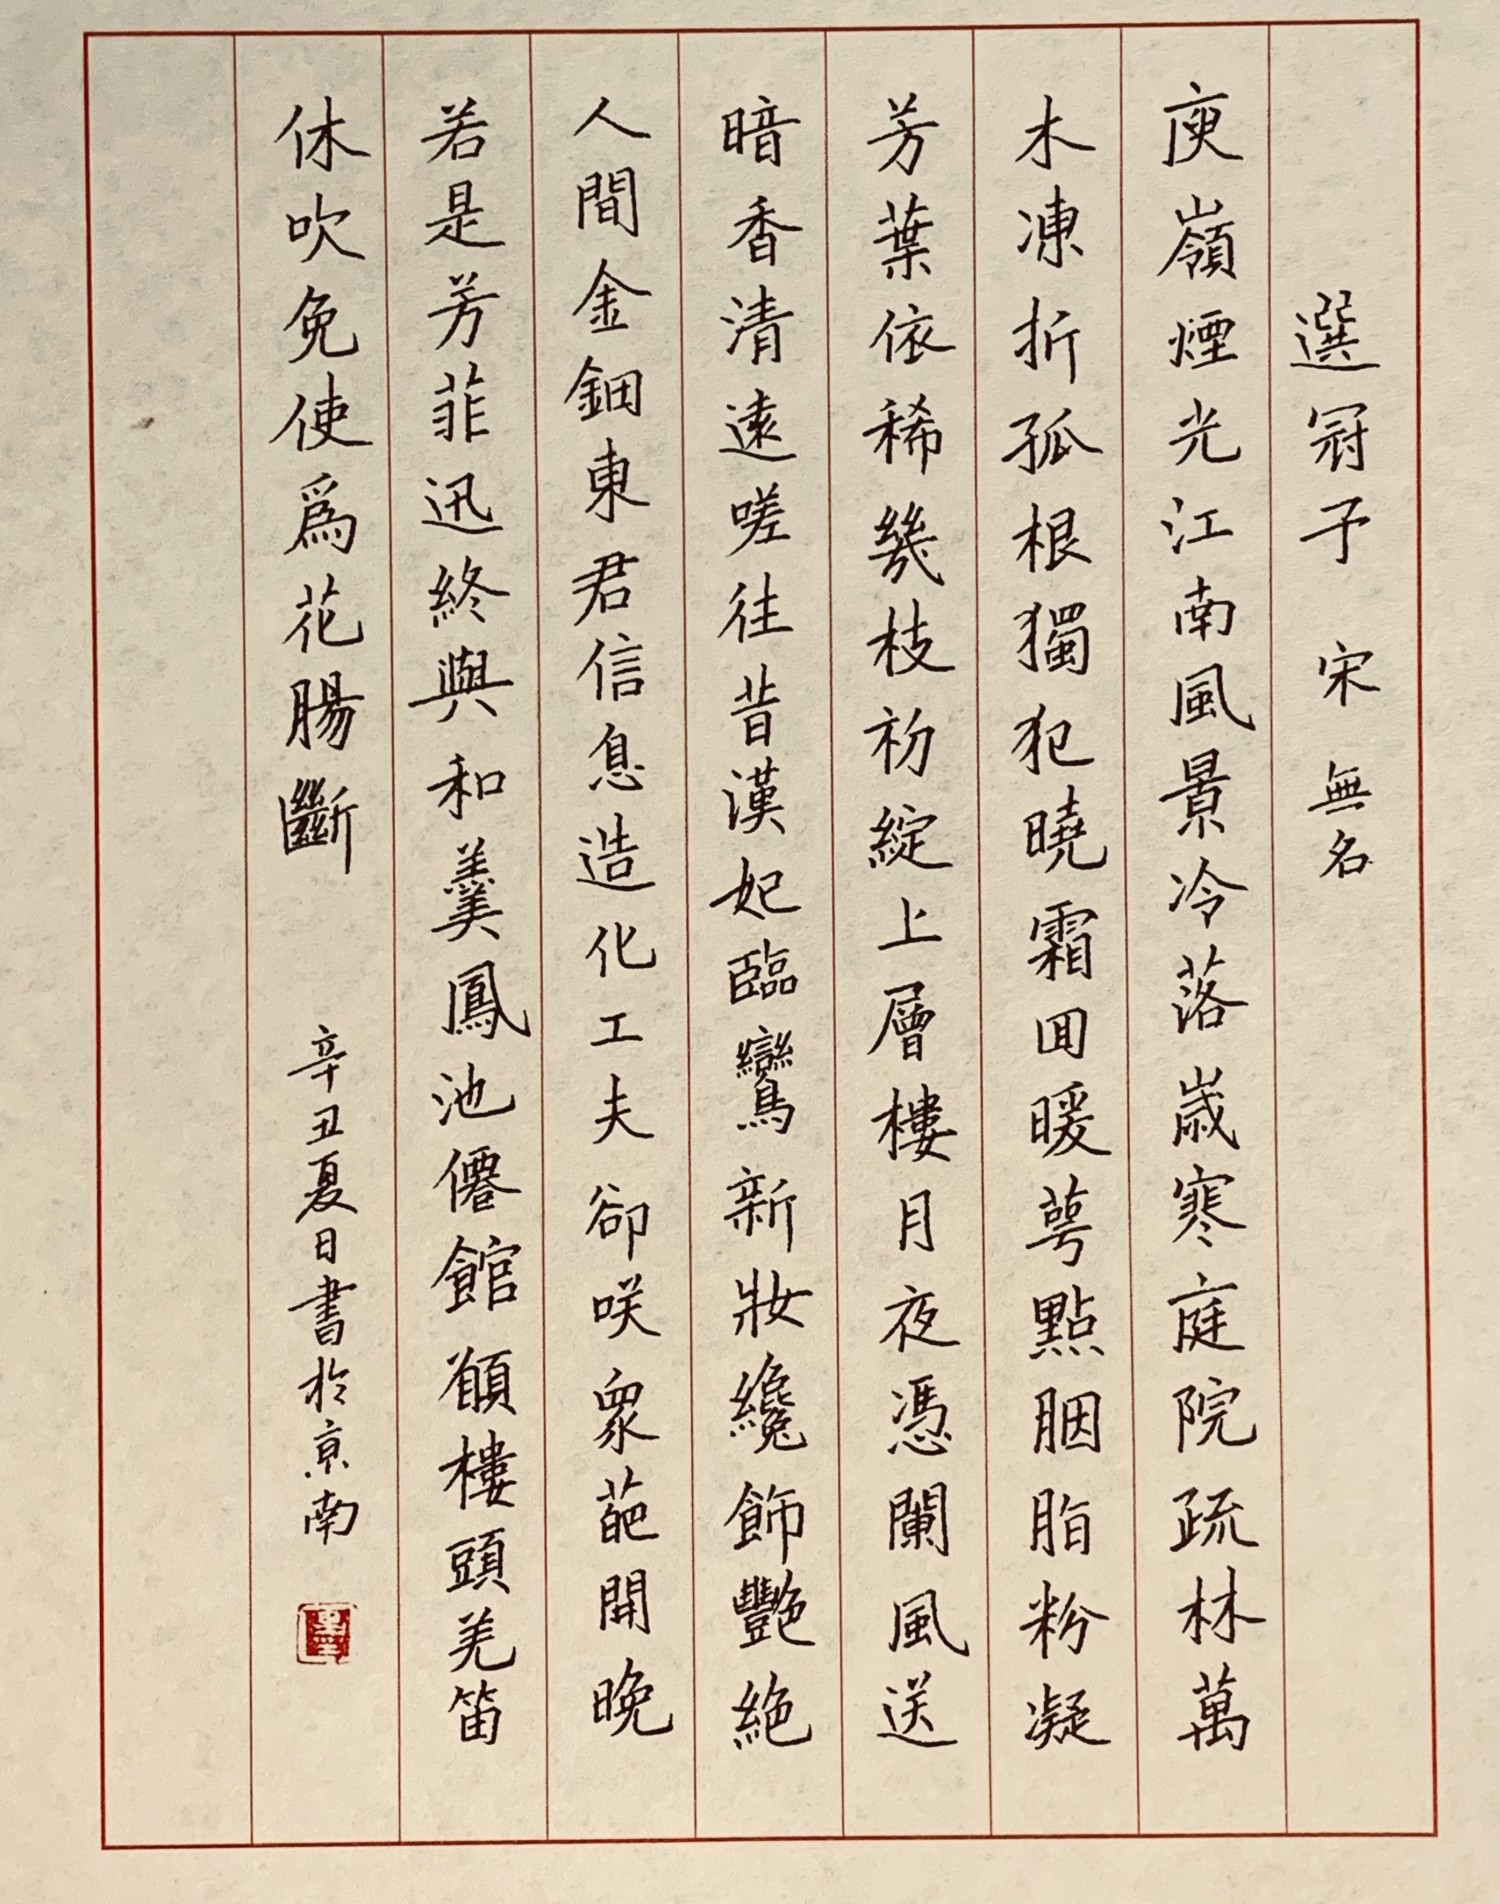 選冠子 宋 無名
庾嶺煙光江南風景冷落歲寒庭院疏林萬
木凍折孤根獨犯曉霜回暖萼點胭脂粉凝
芳葉依稀幾枝初綻上層樓月夜憑闌風送
暗香清遠嗟往昔漢妃臨鸞新妝纔飾艷絕
人間金鈿東君信息造化工夫卻咲眾葩開晚
若是芳菲迅終與和羹鳳池僊館願樓頭羌笛
休吹免使爲花腸斷 辛丑夏日書於京南